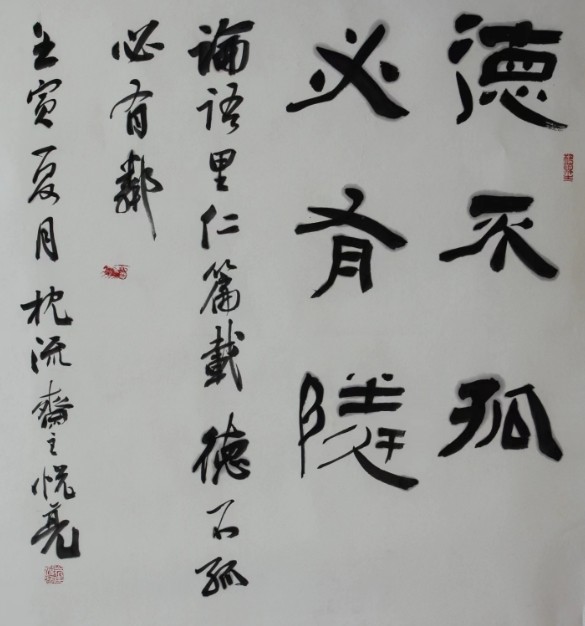 德不孤
必有隣
論語里仁篇載德不孤
必有鄰
壬寅夏月枕流齋主悦亮